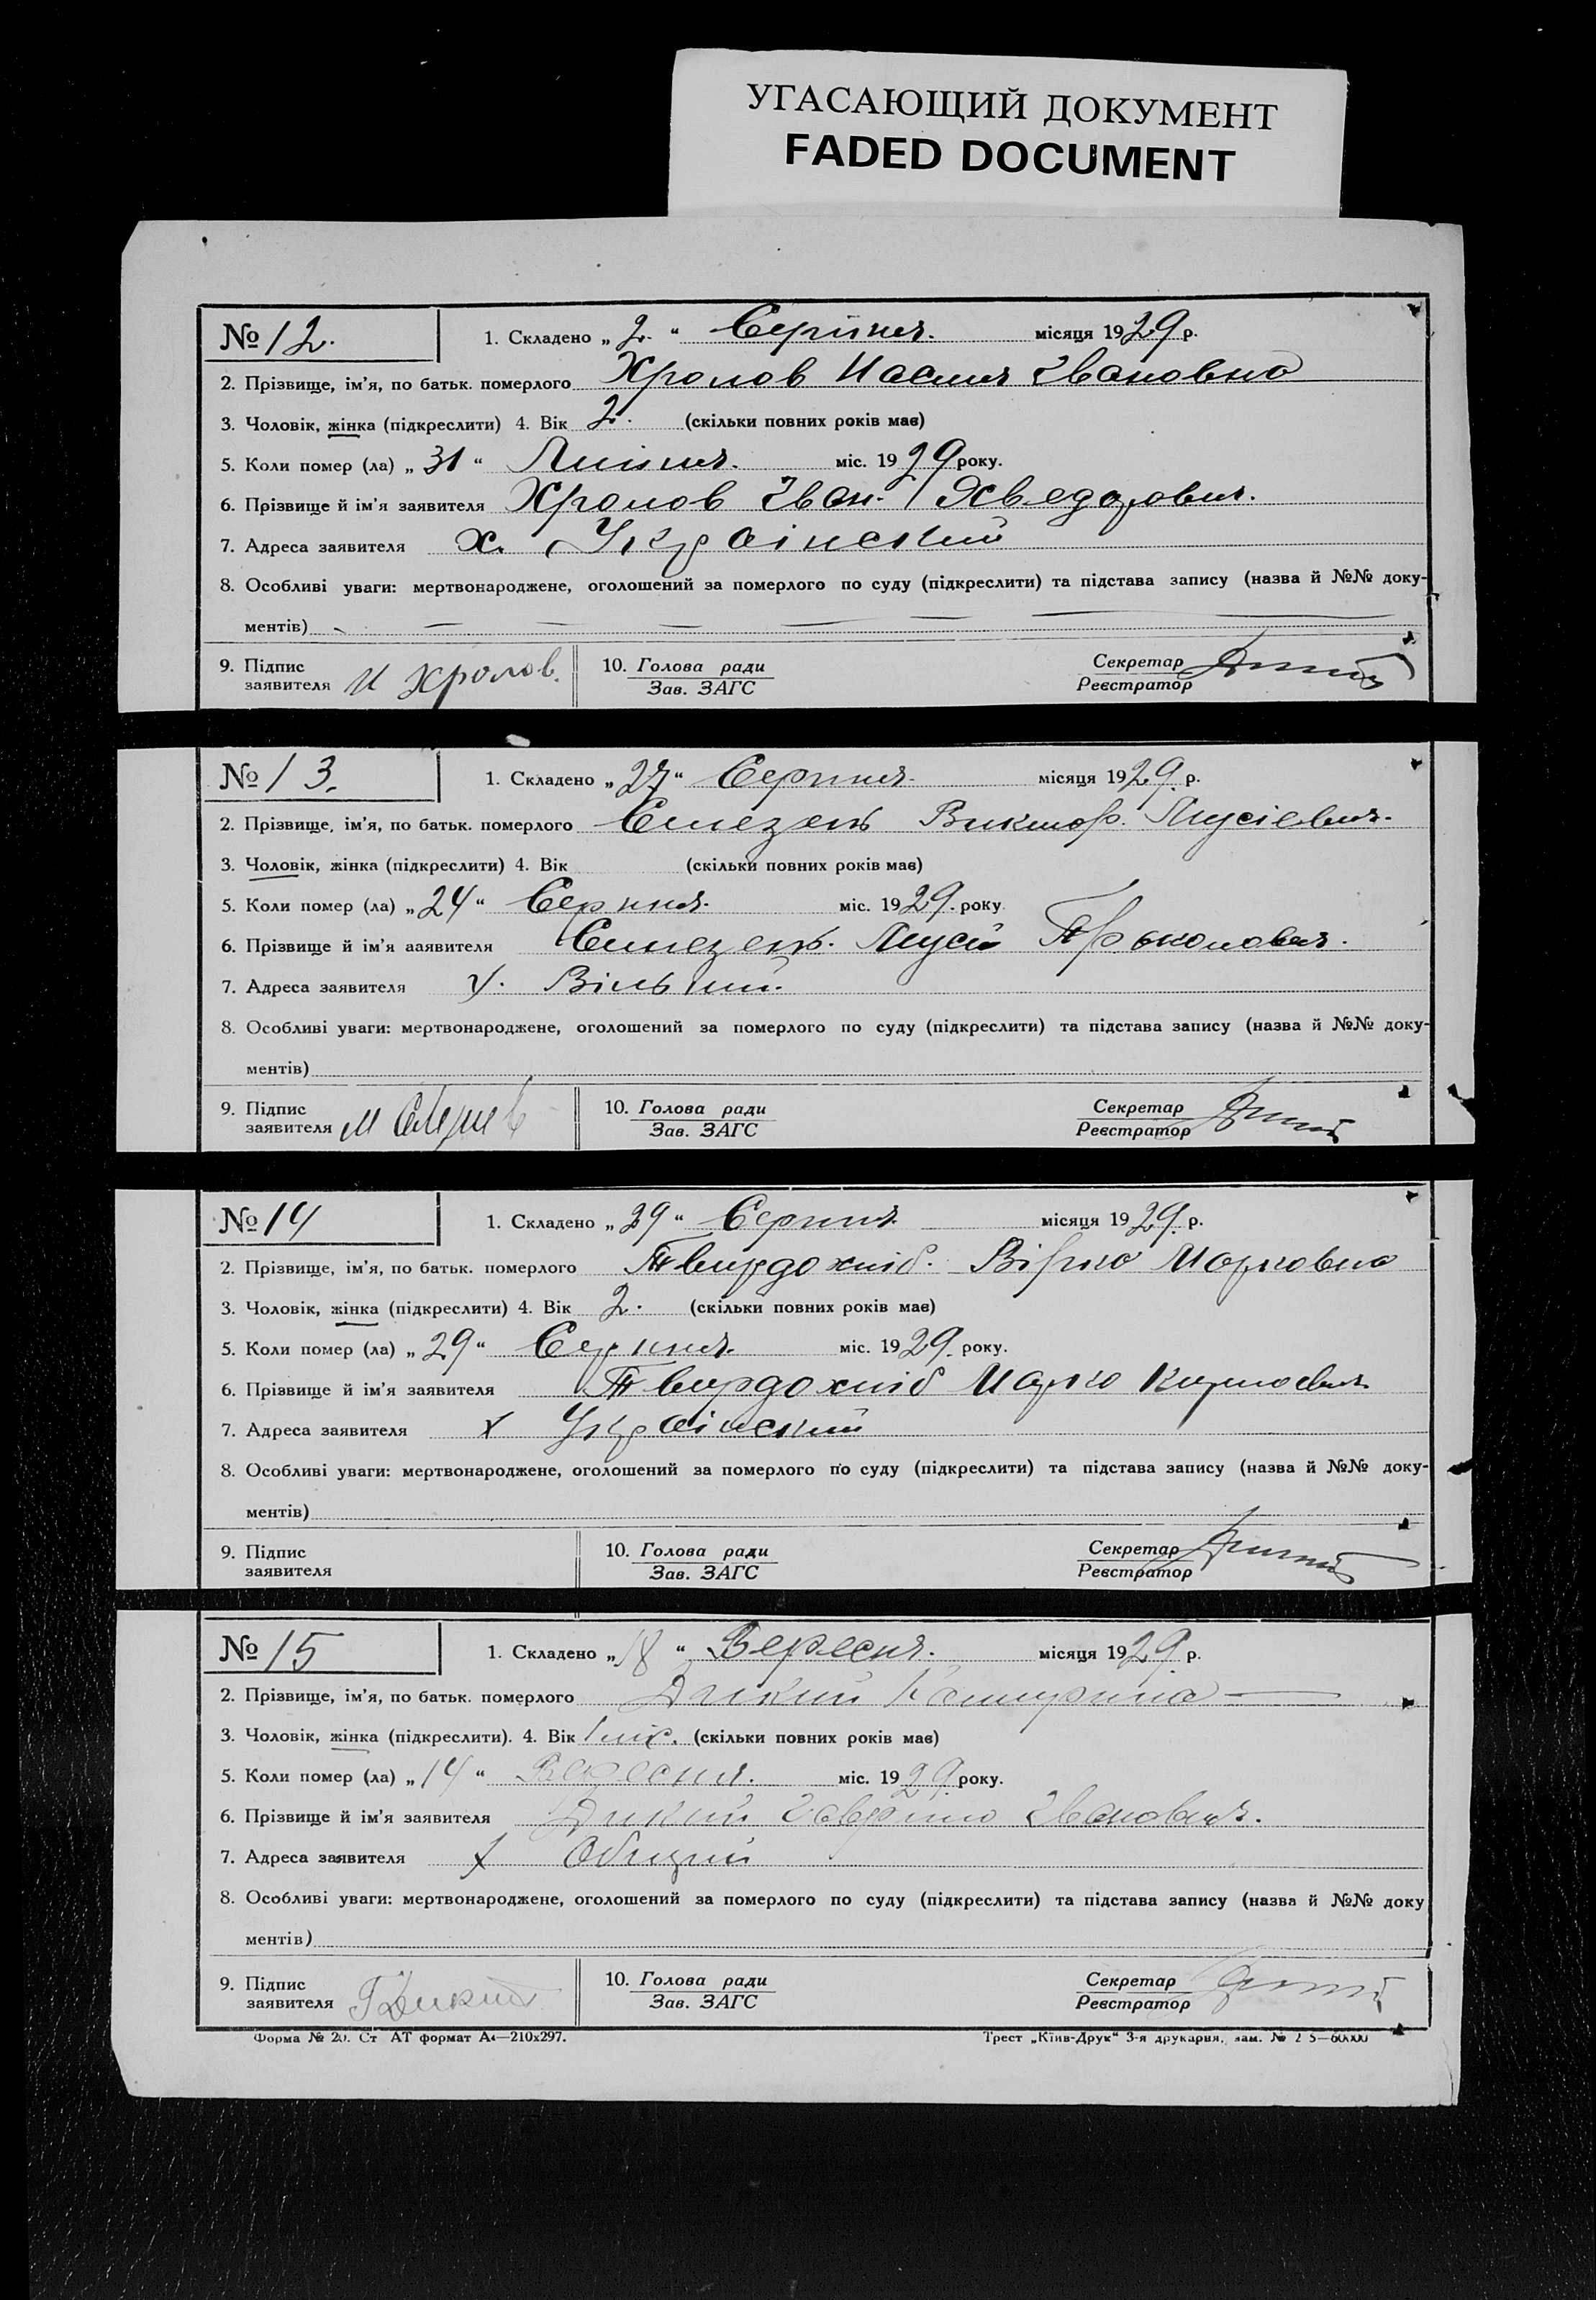 УГАСАЮЩИЙ ДОКУМЕНТ
FADED DOCUMENT
№ 12. 1. Складено „2.“ Серпня. місяця 1929 р.
2. Прізвище, ім’я, по батьк. померлого Хролов Настя Івановна
3. Чоловік, жінка (підкреслити) 4. Вік 2. (скільки повних років має)
5. Коли помер (ла) „31“ Липня. міс. 1929 року.
6. Прізвище й ім’я заявителя Хролов Іван Хведорович.
7. Адреса заявителя х. Украінский
8. Особливі уваги: мертвонароджене, оголошений за померлого по суду (підкреслити) та підстава запису (назва й №№ доку-
ментів)
9. Підпис заявителя И Хролов. 10. Голова ради Зав. ЗАГС Секретар Реєстратор
№ 13. 1. Складено „27“ Серпня. місяця 1929. р.
2. Прізвище, ім’я, по батьк. померлого Виктор. Мусіевич.
3. Чоловік, жінка (підкреслити) 4. Вік (скільки повних років має)
5. Коли помер (ла) „24“ Серпня. міс. 1929. року
6. Прізвище й ім’я заявителя Мусій
7. Адреса заявителя х. Вільний.
8. Особливі уваги: мертвонароджене, оголошений за померлого по суду (підкреслити) та підстава запису (назва й №№ доку-
ментів)
9. Підпис заявителя М 10. Голова ради Зав. ЗАГС Секретар Реєстратор
№ 14 1. Складено „29“ Серпня місяця 1929. р.
2. Прізвище, ім’я, по батьк. померлого Твирдохліб. Вірка Марковна
3. Чоловік, жінка (підкреслити) 4. Вік 2. (скільки повних років має)
5. Коли помер (ла) „29“ Серпня. міс. 1929. року.
6. Прізвище й ім’я заявителя Твирдохліб Марко
7. Адреса заявителя х Украінский
8. Особливі уваги: мертвонароджене, оголошений за померлого по суду (підкреслити) та підстава запису (назва й №№ доку-
ментів)
9. Підпис заявителя 10. Голова ради Зав. ЗАГС Секретар Реєстратор
№ 15 1. Складено „18“ Вересня. місяця 1929. р.
2. Прізвище, ім’я, по батьк. померлого Дикий Катирина
3. Чоловік, жінка (підкреслити). 4. Вік 1 міс. (скільки повних років має)
5. Коли помер (ла) „14“ Вересня. міс. 1929. року.
6. Прізвище й ім’я заявителя Дикий Гаврило Іванович.
7. Адреса заявителя х
8. Особливі уваги: мертвонароджене, оголошений за померлого по суду (підкреслити) та підстава запису (назва й №№ доку
ментів)
9. Підпис заявителя Г Дикий 10. Голова ради Зав. ЗАГС Секретар Реєстратор
Форма № 20. Ст АТ формат А4—210х297. Трест „Київ-Друк“ 3-я друкарня, зам. №